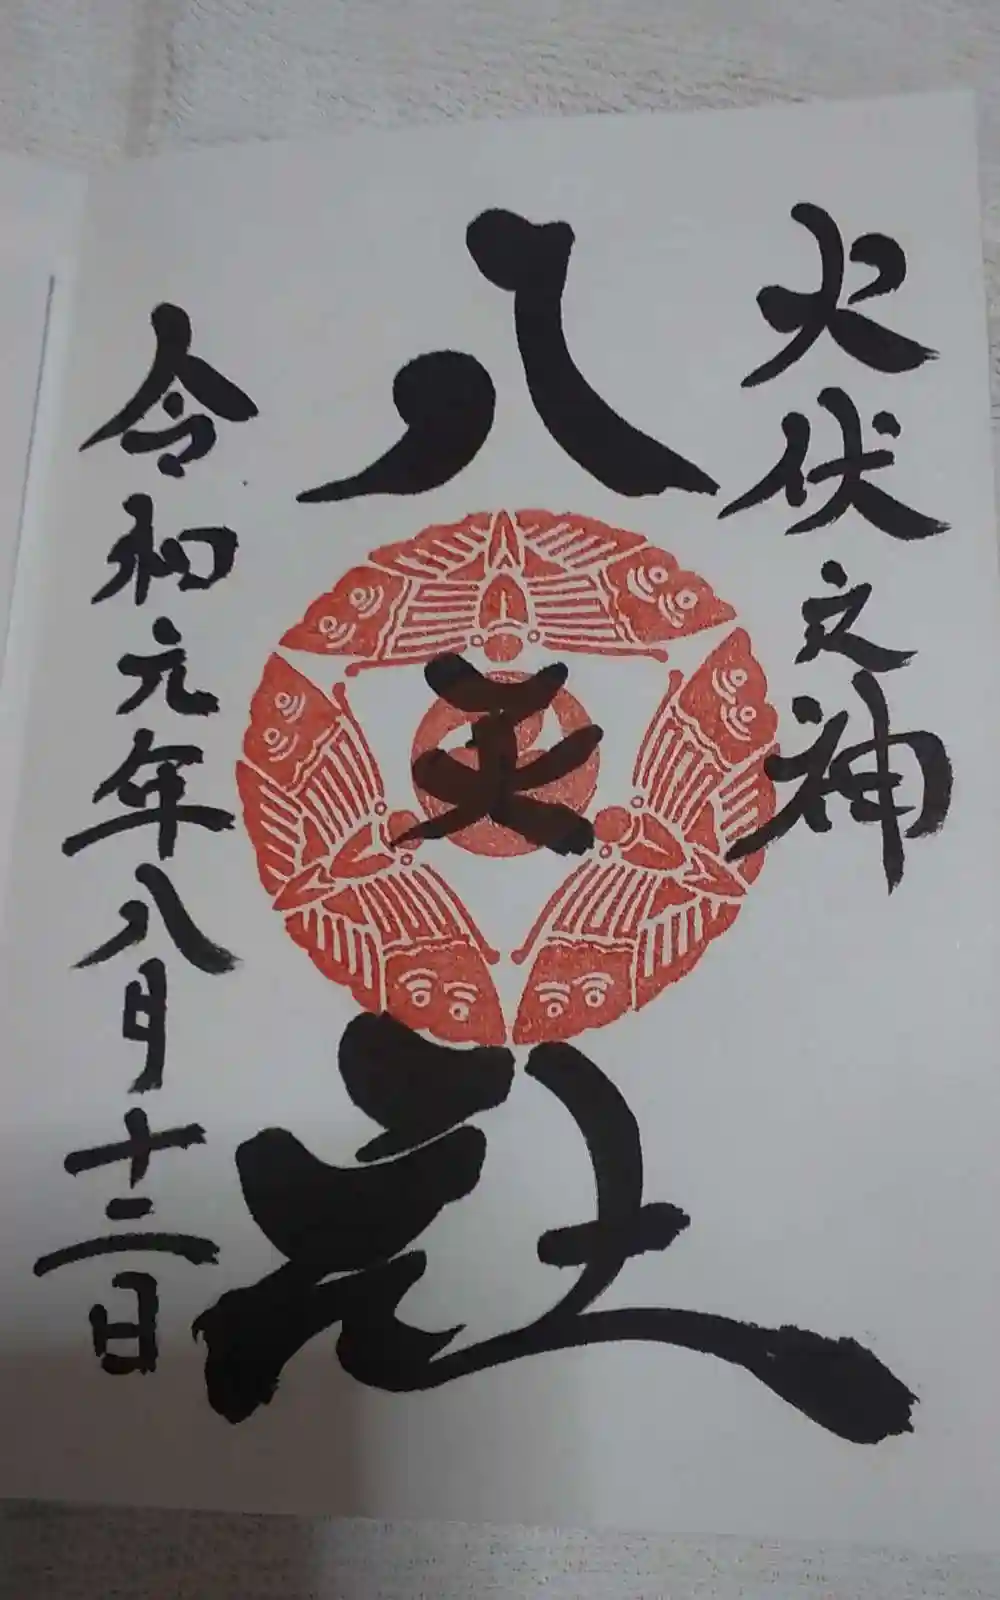 火伏之神
八天社
令和元年八月十二日